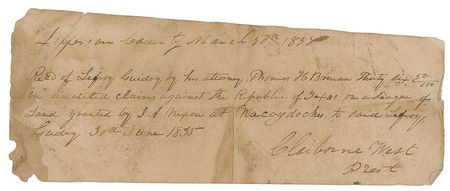 Jefferson County March 30th 1838
Recd of Lefroy Guidry by his attorney, Thomas H. Brenan Thirty Six 50/100
in audited claims against the Republic of Texas on a League of
Land granted by J. A. Nixon at Nacogdoches to said Lefroy
Guidry 30th June 1835
Claiborne West
Prest